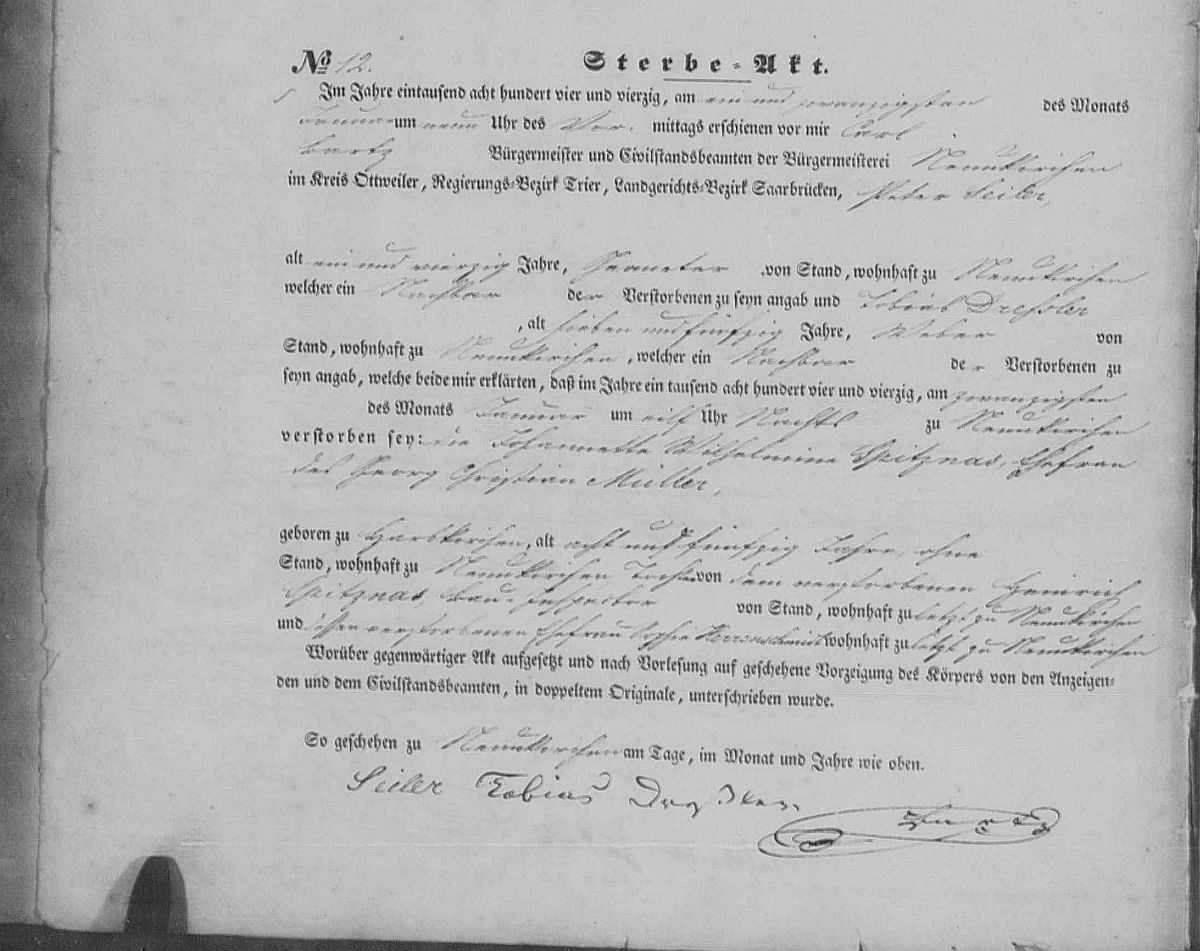 № 12. Sterbe-Akt.
Im Jahre eintausend acht hundert vier und vierzig, am ein und zwanzigsten des Monats
Januar um neun Uhr des Vor- mittags erschienen vor mir Carl
Bartz Bürgermeister und Civilstandsbeamten der Bürgermeisterei Neunkirchen
im Kreis Ottweiler, Regierungs-Bezirk Trier, Landgerichts-Bezirk Saarbrücken, Peter Seiler,
alt ein und vierzig Jahre, von Stand, wohnhaft zu Neunkirchen
welcher ein Nachbar der Verstorbenen zu seyn angab und Tobias Dreßler
, alt sieben und fünfzig Jahre, Weber von
Stand, wohnhaft zu Neunkirchen, welcher ein Nachbar der Verstorbenen zu
seyn angab, welche beide mir erklärten, daß im Jahre ein tausend acht hundert vier und vierzig, am zwanzigsten
des Monats Januar um eilf Uhr Nachts zu Neunkirchen
verstorben sey: die Johannette Wilhelmine Spitznas, Ehefrau
des Georg Christian Müller,
geboren zu Harskirchen, alt acht und fünfzig Jahre, ohne
Stand, wohnhaft zu Neunkirchen Tochter von dem verstorbenen Heinrich
Spitznas, Bau-Inspector von Stand, wohnhaft zu letzt zu Neunkirchen
und dessen verstorbenen Ehefrau Sophie Herrenschmidt wohnhaft zu letzt zu Neunkirchen
Worüber gegenwärtiger Akt aufgesetzt und nach Vorlesung auf geschehene Vorzeigung des Körpers von den Anzeigen-
den und dem Civilstandsbeamten, in doppeltem Originale, unterschrieben wurde.
So geschehen zu Neunkirchen am Tage, im Monat und Jahre wie oben.
Seiler Tobias Dreßler Bartz